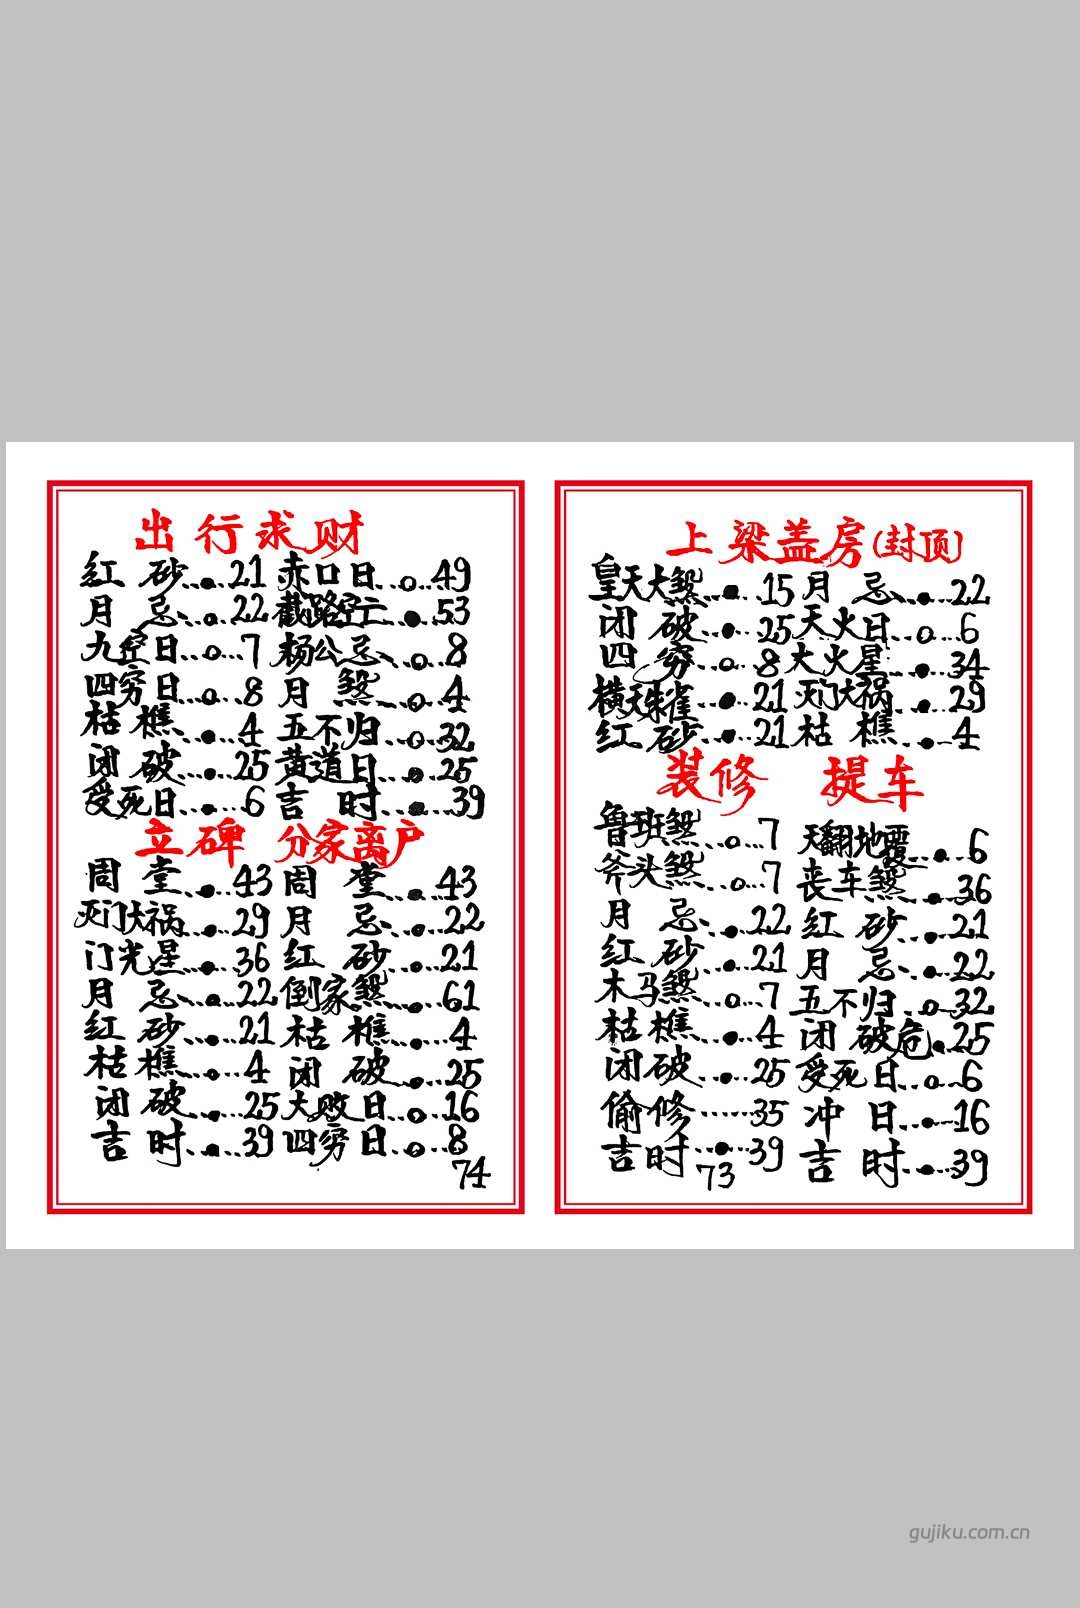 出行求财
红砂...●...21 赤口日...○...49
月忌...○...22 截路空亡...●...53
九空日...○...7 杨公忌...○...8
四穷日...○...8 月煞...○...4
枯樵...●...4 五不归...○...32
闭破...●...25 黄道日...●...25
受死日...●...6 吉时...●...39
立碑 分家离户
周堂...●...43 周堂...●...43
灭门大祸...●...29 月忌...●...22
门光星...●...36 红砂...●...21
月忌...●...22 倒家煞...●...61
红砂...●...21 枯樵...●...4
枯樵...●...4 闭破...●...25
闭破...●...25 大败日...○...16
吉时...●...39 四穷日...○...8
74
上梁盖房(封顶)
皇天大煞...●...15 月忌...●...22
闭破...●...25 天火日...○...6
四穷...○...8 大火星...●...34
横天朱雀...●...21 灭门大祸...●...29
红砂...●...21 枯樵...●...4
装修 提车
鲁班煞...○...7 天翻地覆...●...6
斧头煞...○...7 丧车煞...●...36
月忌...●...22 红砂...●...21
红砂...●...21 月忌...●...22
木马煞...○...7 五不归...○...32
枯樵...●...4 闭破危...●...25
闭破...●...25 受死日...○...6
偷修......35 冲日...●...16
吉时...●...39 吉时...●...39
73
gujiku.com.cn